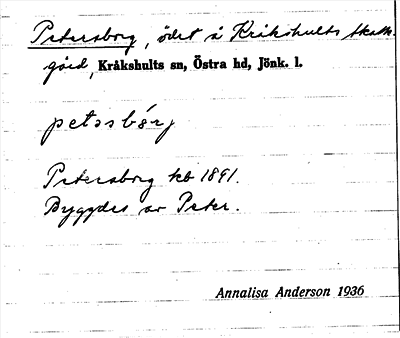 Petersborg, ödet å Kråkshults skatte-
gård, Kråkshults sn, Östra hd, Jönk. l.
petəsbórj
Petersborg kb 1891.
Byggdes av Peter.
Annalisa Anderson 1936